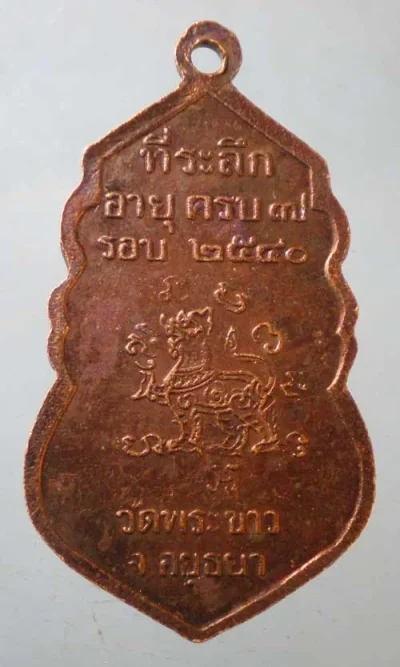 ที่ระลึก
อายุ ครบ ๗
รอบ ๒๕๔๐
วัดพระขาว
จ.อยุธยา